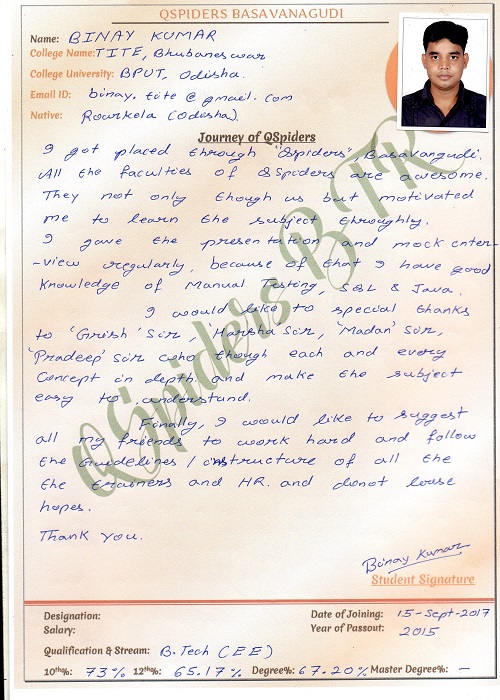 QSPIDERS BASAVANAGUDI
Name: BINAY KUMAR
College Name: TITE, Bhubaneswar
College University: BPUT, Odisha.
Email ID: binay.tite@gmail.com
Native: Rourkela (Odisha).
Journey of QSpiders
I got placed through "QSpiders", Basavangudi.
All the faculties of QSpiders are awesome.
They not only though us but motivated
me to learn the subject throughly.
I gave the presentation and mock enter-
-view regularly, because of that I have good
knowledge of Manual Testing, SQL & Java.
I would like to special thanks
to 'Girish' Sir, 'Harsha Sir, 'Madan' Sir,
'Pradeep' Sir who though each and every
Concept in depth and make the subject
easy to understand.
Finally, I would like to suggest
all my friends to work hard and follow
the Guidelines / instructure of all the
the trainers and HR. and donot louse
hopes.
Thank you.
Binay Kumar
Student Signature
QSpiders BTR
Designation:
Date of Joining: 15-Sept-2017
Salary:
Year of Passout: 2015
Qualification & Stream: B.Tech (EE)
10th%: 73% 12th%: 65.17% Degree%: 67.20% Master Degree%: -